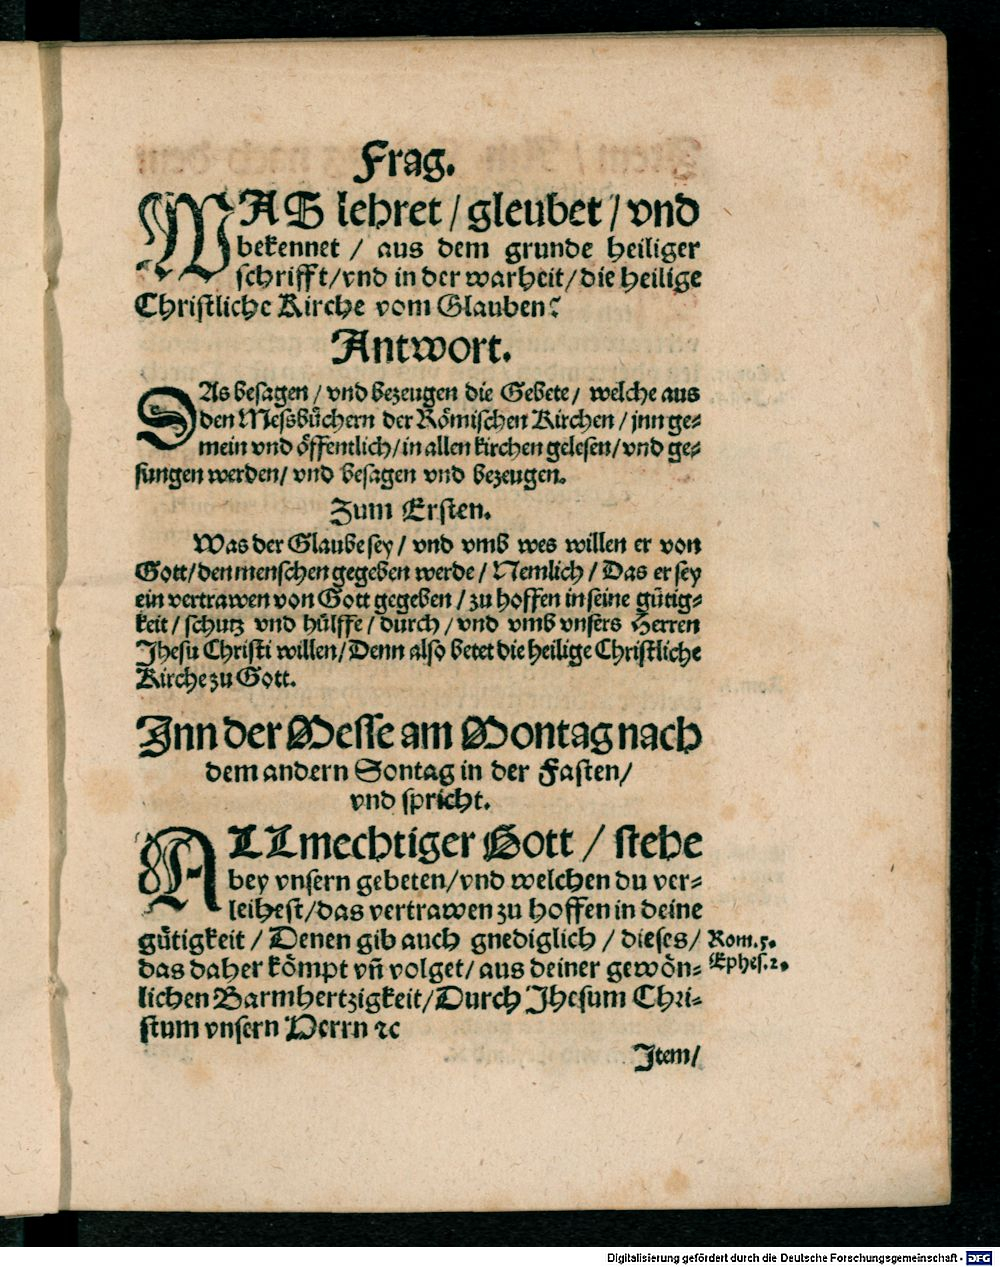 Frag.
WAS lehret / gleubet / vnd
bekennet / aus dem grunde heiliger
schrifft/vnd in der warheit/die heilige
Christliche Kirche vom Glauben?
Antwort.
DAs besagen / vnd bezeugen die Gebete / welche aus
den Messbüchern der Römischen Kirchen / jnn ge-
mein vnd öffentlich/in allen kirchen gelesen/vnd ge-
sungen werden/ vnd besagen vnd bezeugen.
Zum Ersten.
Was der Glaube sey / vnd vmb wes willen er von
Gott/den menschen gegeben werde / Nemlich / Das er sey
ein vertrawen von Gott gegeben / zu hoffen in seine gütig-
keit / schutz vnd hülffe / durch / vnd vmb vnsers Herren
Jhesu Christi willen/Denn also betet die heilige Christliche
Kirche zu Gott.
Inn der Messe am Montag nach
dem andern Sontag in der Fasten/
vnd spricht.
ALLmechtiger Gott / stehe
bey vnsern gebeten/vnd welchen du ver-
leihest/das vertrawen zu hoffen in deine
gütigkeit / Denen gib auch gnediglich / dieses/ Rom.5.
das daher kömpt vñ volget/aus deiner gewön- Ephes.2.
lichen Barmhertzigkeit/Durch Jhesum Chri-
stum vnsern Herrn ꝛc
Item/
Digitalisierung gefördert durch die Deutsche Forschungsgemeinschaft - DFG